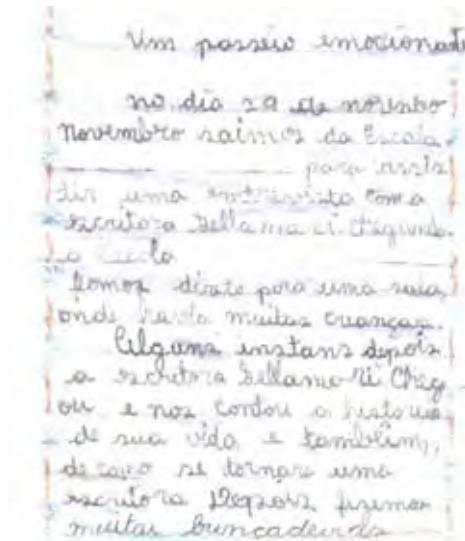 Um passeio emocionate
no dia 29 de novenbo
Novembro saimos da Escola
para assis
tir uma entrevista com a
escritora Bella
Fomos direto para uma sala,
onde havia muitas crianças.
Alguns instans depois
a escritora Cheg
ou e nos contou a historia
de sua vida e tambem,
de como se tornara uma
escritora Depois fizemos
muitas buncadeiras